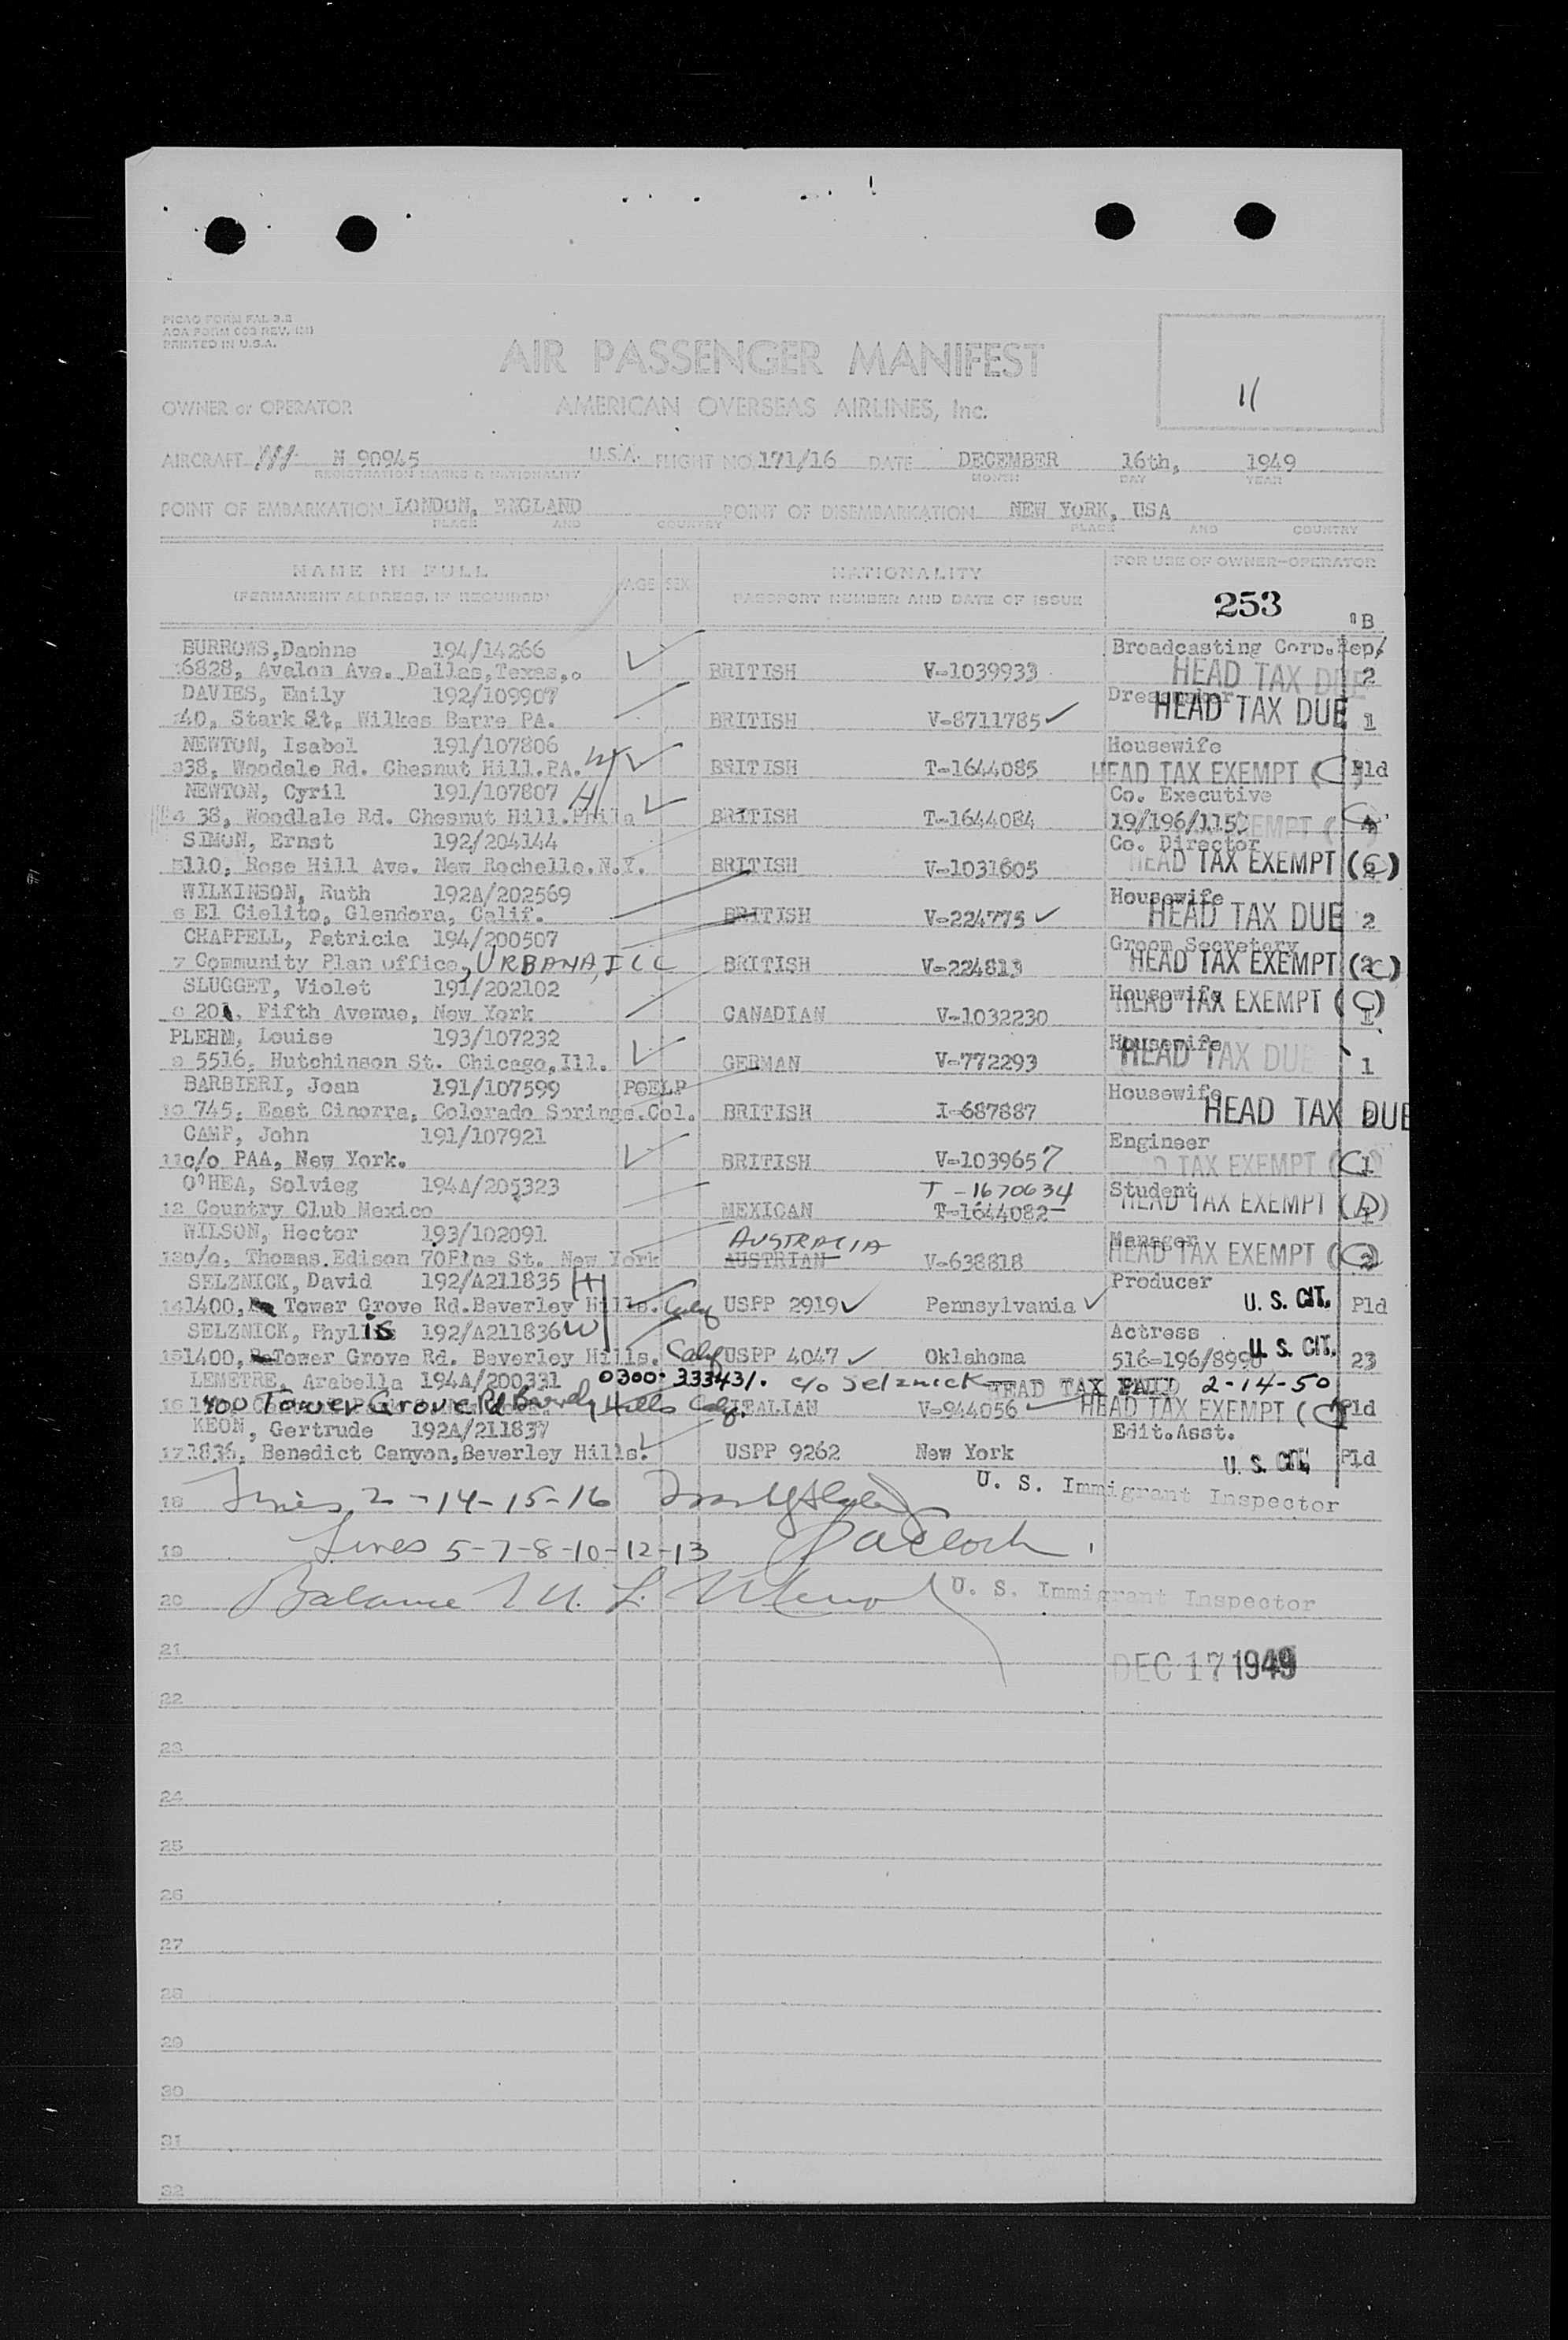 PICAO FORM FAL 3.2
AOA FORM 003 REV.
PRINTED IN U.S.A.
AIR PASSENGER MANIFEST
11
OWNER or OPERATOR AMERICAN OVERSEAS AIRLINES, Inc.
AIRCRAFT N 90945 U.S.A. FLIGHT NO. 171/16 DATE DECEMBER 16th, 1949
REGISTRATION MARKS & NATIONALITY MONTH DAY YEAR
POINT OF EMBARKATION LONDON, ENGLAND POINT OF DISEMBARKATION NEW YORK, USA
PLACE AND COUNTRY PLACE AND COUNTRY
NAME IN FULL AGE SEX NATIONALITY FOR USE OF OWNER-OPERATOR
(PERMANENT ADDRESS, IF REQUIRED) PASSPORT NUMBER AND DATE OF ISSUE 253
B
BURROWS,Daphne 194/14266 Broadcasting Corp.Rep.
6828, Avalon Ave. Dallas,Texas,. BRITISH V-1039933 HEAD TAX DUE 2
DAVIES, Emily 192/109907 Dressmaker
40, Stark St, Wilkes Barre PA. BRITISH V-8711785 ✓ HEAD TAX DUE 1
NEWTON, Isabel 191/107806 W Housewife
38, Woodale Rd. Chesnut Hill.PA. BRITISH T-1644085 HEAD TAX EXEMPT (C) Pld
NEWTON, Cyril 191/107807 H Co. Executive
4 38, Woodlale Rd. Chesnut Hill.Phila BRITISH T-1644084 19/196/115. EXEMPT (
SIMON, Ernst 192/204144 Co. Director
5 110, Rose Hill Ave. New Rochelle.N.Y. BRITISH V-1031605 HEAD TAX EXEMPT (C)
WILKINSON, Ruth 192A/202569 Housewife
6 El Cielito, Glendora, Calif. BRITISH V-224775 ✓ HEAD TAX DUE 2
CHAPPELL, Patricia 194/200507 Groom Secretary
7 Community Plan office, URBANA, ILL BRITISH V-224813 HEAD TAX EXEMPT (C)
SLUGGET, Violet 191/202102 Housewife
201, Fifth Avenue, New York CANADIAN V-1032230 HEAD TAX EXEMPT (C) 1
PLEHN, Louise 193/107232 Housewife
9 5516, Hutchinson St. Chicago,Ill. GERMAN V-772293 HEAD TAX DUE 1
BARBIERI, Joan 191/107599 POELP Housewife
10 745, East Cimorra, Colorado Springs.Col. BRITISH I-687887 HEAD TAX DUE
CAMP, John 191/107921 Engineer
11 c/o PAA, New York. BRITISH V-1039657 TAX EXEMPT (C) 1
O'HEA, Solvieg 194A/205323 T-1670634 Student
12 Country Club Mexico MEXICAN T-1644082 HEAD TAX EXEMPT (D) 1
WILSON, Hector 193/102091 AUSTRALIA Manager
13 c/o, Thomas.Edison 70Pine St. New York AUSTRIAN V-638818 HEAD TAX EXEMPT (C) 2
SELZNICK, David 192/A211835 H Producer
14 1400, Tower Grove Rd.Beverley Hills. Calif USPP 2919 ✓ Pennsylvania ✓ U. S. CIT. Pld
SELZNICK, Phyllis 192/A211836 W Actress
15 1400, Tower Grove Rd. Beverley Hills. Calif USPP 4047 ✓ Oklahoma 516-196/8990 U. S. CIT. 23
LEMETRE, Arabella 194A/200331 0300-333431. c/o Selznick HEAD TAX PAID 2-14-50
16 1400 Tower Grove Rd Beverly Hills Calif. ITALIAN V-944056 ✓ HEAD TAX EXEMPT (C) Pld
KEON, Gertrude 192A/211837 Edit.Asst.
17 1836, Benedict Canyon,Beverley Hills. USPP 9262 New York U. S. CIT. Pld
18 Lines 2-14-15-16 U. S. Immigrant Inspector
19 Lines 5-7-8-10-12-13
20 Balance U. S. Immigrant Inspector
21
DEC 17 1949
22
23
24
25
26
27
28
29
30
31
32